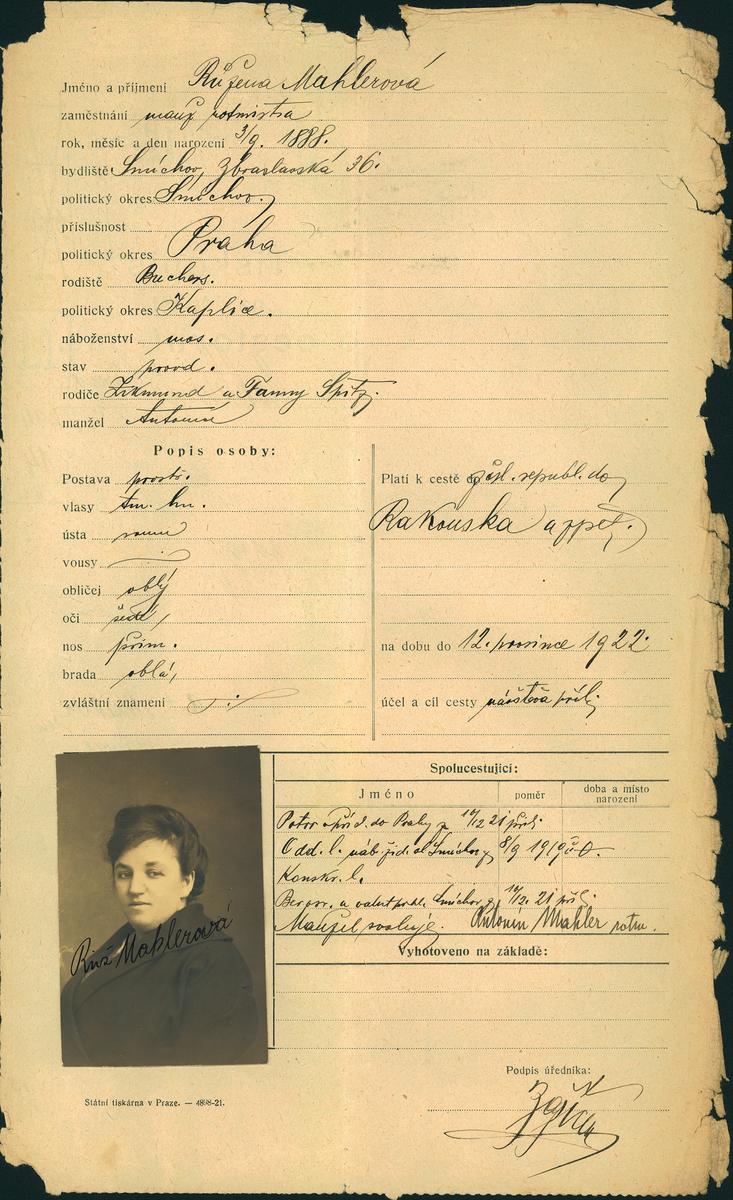 Jméno a příjmení Růžena Mahlerová
zaměstnání manž rotmistra
rok, měsíc a den narození 3/9. 1888.
bydliště Smíchov, Zbraslavská 36.
politický okres Smíchov
příslušnost
politický okres Praha
rodiště Buchers.
politický okres Kaplice.
náboženství mos.
stav provd.
rodiče Zikmund a Fanny Spitz
manžel Antonín
Popis osoby:
Postava prostř.
vlasy tm. hn.
ústa
vousy
obličej oblý
oči šedé,
nos přím.
brada oblá,
zvláštní znamení
Platí k cestě do čsl. republ. do
Rakouska a zpět.
na dobu do 12. prosince 1922.
účel a cíl cesty návštěva příb.
Spolucestující:
Jméno poměr doba a místo narození
Potvr. do Prahy z 10/12 21
Odd. l. náb. žid. ob. Smíchov z 8/9 1919
Konskr. l.
Smíchov z 10/12. 21
Manžel svoluje. Antonín Mahler rotm.
Vyhotoveno na základě:
Růž Mahlerová
Podpis úředníka:
Státní tiskárna v Praze. — 4898-21.